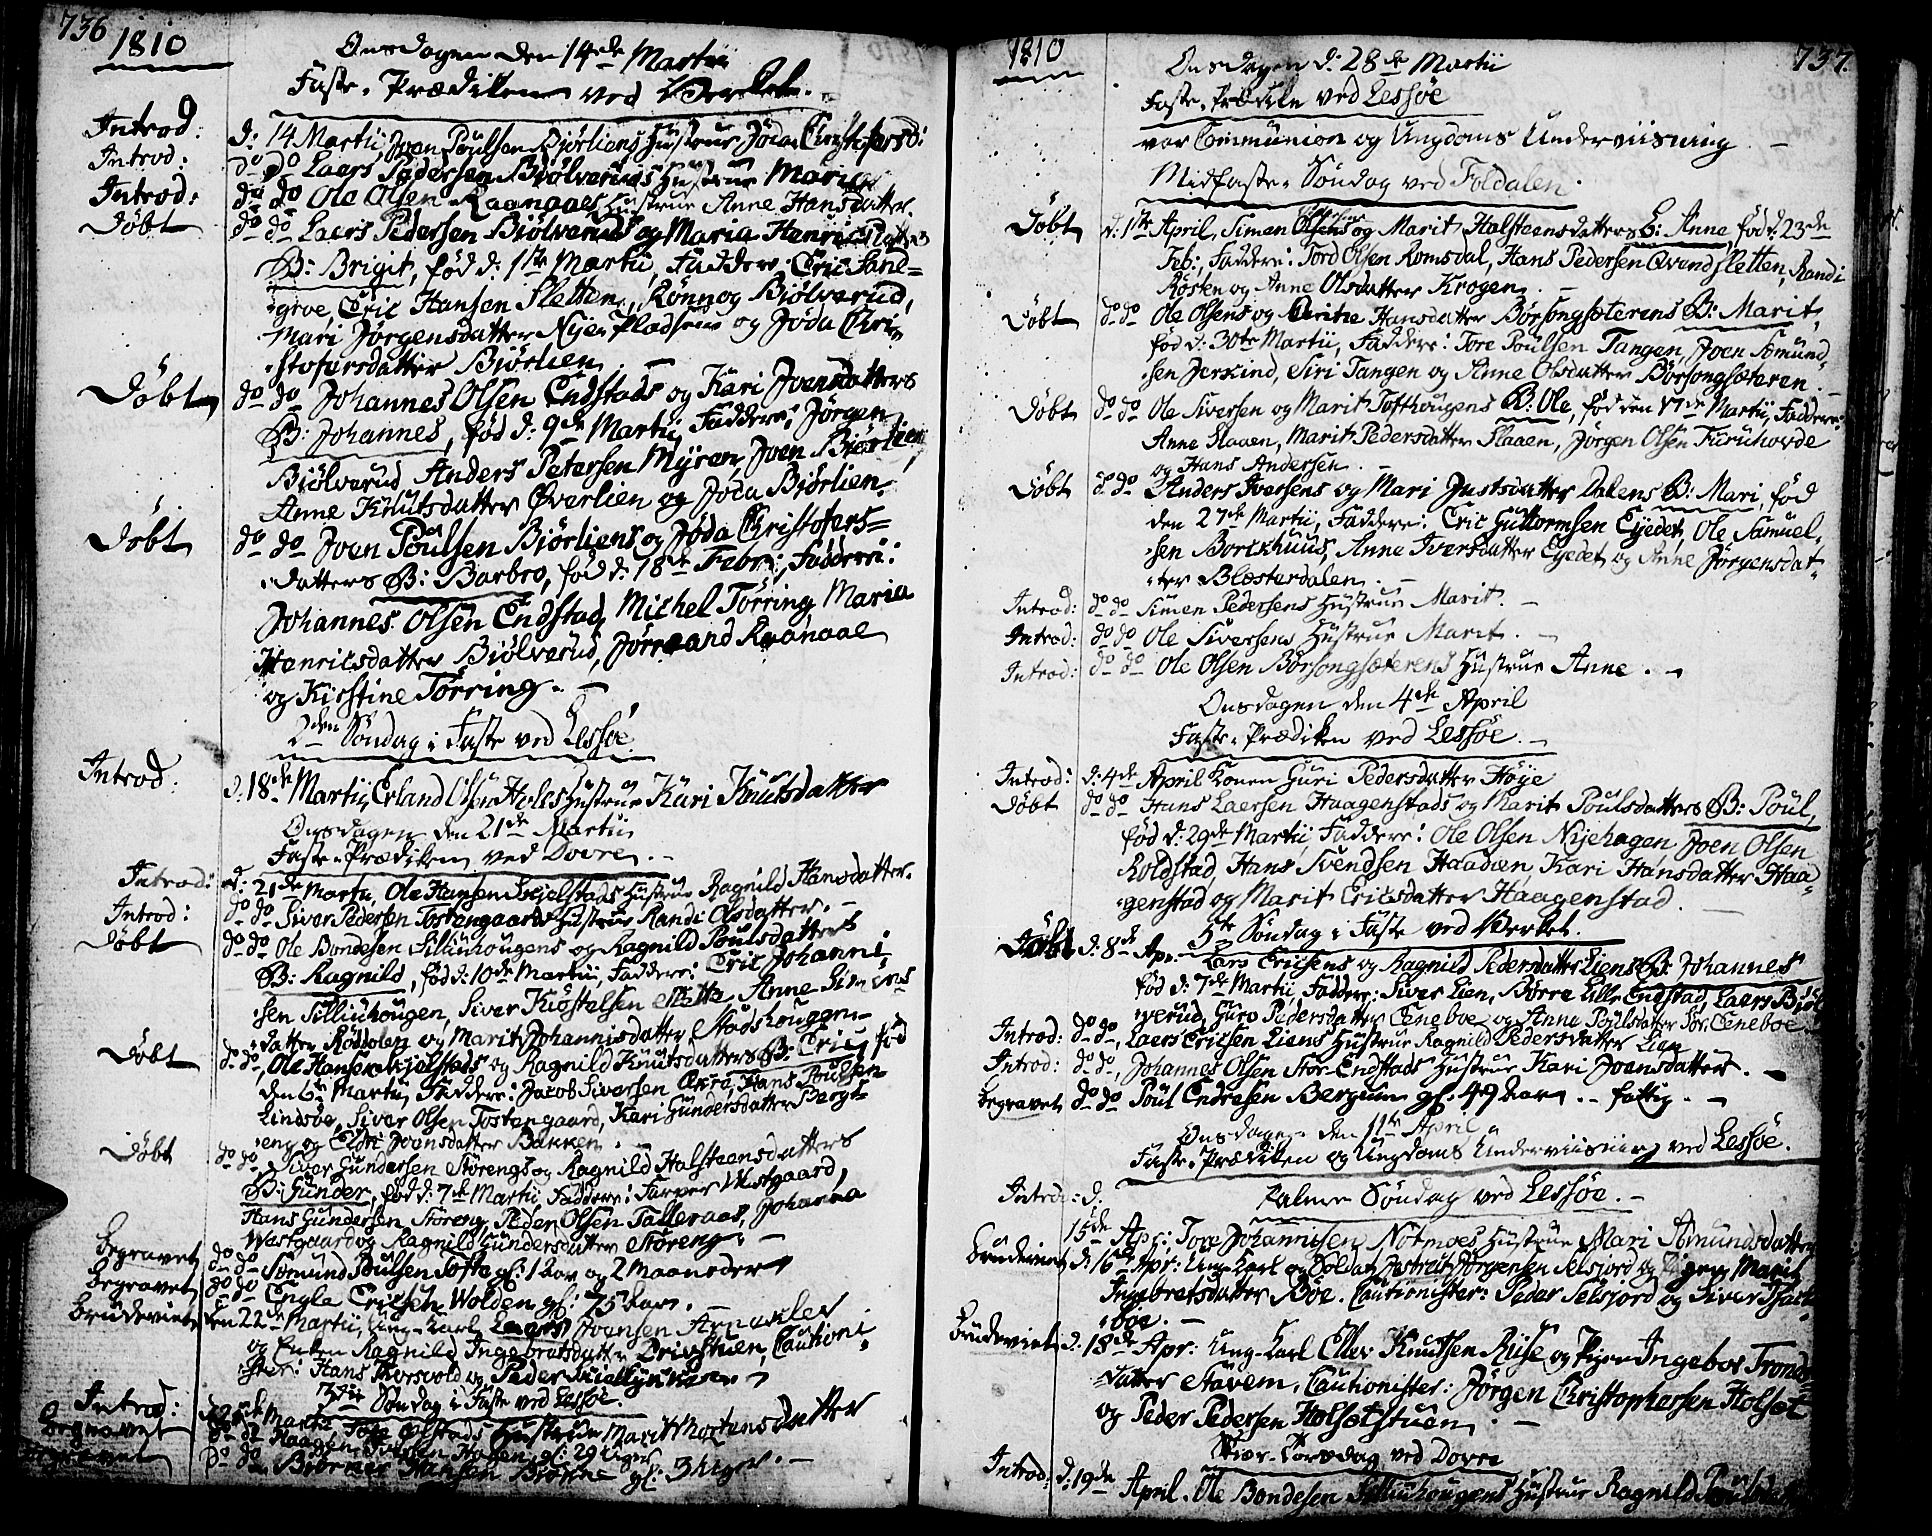 736
1810
Onsdagen den 14de Martii
Faste-Prædiken ved Verket.
Introd: d: 14 Martii, Joen Poulsen Bjørliens Hustrue Jøda Christofersd:
Introd: do do Laers Pedersen Biølveruds Hustrue Maria
Introd: do do Ole Olsen Raanaaes Hustrue Anne Hansdatter.
Døbt do do Laers Pedersen Biølveruds og Maria Henricsdatters
B: Brigit, fød d: 1ste Martii, Faddere: Eric Sand=
grve, Eric Hansen Sletten, Rønnog Biølverud,
Mari Jørgensdatter Nyer Pladsen og Jøda Chri=
stofersdatter Biørlien.
Døbt do do Johannes Olsen Endstads og Kari Joensdatters
B: Johannes, fød d: 9de Martii, Faddere: Jørgen
Biølverud, Anders Petersen Myren, Joen Biørlien,
Anne Knutsdatter Øverlien og Joda Biørlien.
Døbt do do Joen Poulsen Biørliens og Jøda Christofers=
datters B: Barbro, fød d: 18de Febr:, Faddere:
Johannes Olsen Endstad, Michel Torring, Maria
Henricsdatter Biølverud, Jørraand Raanaae
og Kirstine Torring.
2den Søndag i Faste ved Lessøe.
Introd: d: 18de Martii, Erland Olsen Holes Hustrue Kari Knutsdatter
Onsdagen den 21de Martii
Faste-Prædiken ved Dovre.
Introd: d: 21de Martii, Ole Hansen Skielstads Hustrue Ragnild Hansdatter.
Introd: do do Siver Pedersen Tostengaards Hustrue Randi Olsdatter.
Døbt do do Ole Bondesen Silliuhougens og Ragnild Poulsdatters
B: Ragnild, fød d: 10de Martii, Faddere: Eric Johanni=
sen Silliuhougen, Siver Kiøstelsen Slette, Anne Simens
datter Røddolen og Marit Johannisdatter Stadshougen
Døbt do do, Ole Hansen Skjelstads og Ragnild Knutsdatters B: Eric, fød
den 6te Martii, Faddere: Jacob Siversen Ekre, Hans Poulsen
Lindsøe, Siver Olsen Tostengaard, Kari Gundersdatter Bergs=
eng og Eldri Joensdatter Bakken.
Døbt do do Siver Gundersen Störengs og Ragnild Halsteensdatters
B: Gunder, fød d: 7de Martii, Faddere: Farver Westgaard,
Hans Gundersen Störeng, Peder Olsen Talleraas, Johanna
Westgaard og Ragnild Gundersdatter Störeng.
Begravet do do Somund Poulsen Tofte gl: 1 Aar og 2 Maaneder
Begravet do do Engle Ericsen Wolden gl: 75 Aar.
Brudeviet den 22de Martii, Ung-Karl Laers Joensen
og Enken Ragnild Ingebretsdatter Drivstuen, Cautioni=
ster: Hans Thorsvold og Peder
3die Søndag i Faste ved Lessøe.
Introd: d: 25de Martii, Hustrue Marit Mortensdatter
Begravet do do Haagen Iversen Hagen gl: 29 Uger
Begravet do do Biørner Hansen gl: 3 Uger.
1810
737.
Onsdagen d: 28de Martii
Faste-Prædiken ved Lessøe
var Communion og Ungdoms Underviisning
Midfaste-Søndag ved Foldalen.
Døbt d: 1ste April, Simen Olsens og Marit Halsteensdatters B: Anne, fød d: 23de
Feb:, Faddere: Tord Olsen Romsdal, Hans Pedersen Qvendsletten, Randi
Røsten og Anne Olsdatter Krogen.
Døbt do do Ole Olsens og Hansdatter Børsongsæterens B: Marit,
fød d: 30te Martii, Faddere: Tore Poulsen Tangen, Joen Somund=
sen Jerkind, Siri Tangen og Anne Olsdatter Børsongsæteren.
Døbt do do Ole Siversen og Marit Tofthougens B: Ole, fød den 17de Martii, Faddere:
Anne Slaaen, Marit Pedersdatter Slaaen, Jørgen Olsen Furuhovde
og Hans Andersen.
Døbt do do Anders Iversens og Mari Justsdatter Dalens B: Mari, fød
den 27de Martii, Faddere: Eric Guttormsen Eyedet, Ole Samuel=
sen Borkhuus, Anne Iversdatter Eyedet og Anne Jørgensdat=
ter Blæsterdalen.
Introd: do do Simen Pedersens Hustrue Marit.
Introd: do do Ole Siversens Hustrue Marit.
Introd: do do Ole Olsen Børsongsæterens Hustrue Anne.
Onsdagen den 4de April
Faste-Prædiken ved Lessøe.
Introd: d: 4de April Konen Guri Pedersdatter Høye
Døbt do do Hans Laersen Haagenstads og Marit Poulsdatters B: Poul,
fød d: 29de Martii, Faddere: Ole Olsen Nyehagen, Joen Olsen
Koldstad, Hans Svendsen Haadæn, Kari Hansdatter Haa=
genstad og Marit Ericsdatter Haagenstad.
5te Søndag i Faste ved Verket.
Døbt d: 8de Apr: Lars Ericsens og Ragnild Pedersdatter Liens B: Johannes
fød d: 7de Martii, Faddere: Siver Lien, Børre Lille Endstad, Laers Biøl=
verud, Guro Pedersdatter Eneboe og Anne Poulsdatter Eneboe
Introd: do do, Laers Ericsen Liens Hustrue Ragnild Pedersdatter Lien
Introd: do do, Johannes Olsen Stor-Endstads Hustrue Kari Joensdatter.
Begravet do do Poul Endresen Bergum gl: 49 Aar. fattig.
Onsdagen den 11te April
Faste-Prædiken og Ungdoms Underviisning ved Lessøe.
Palme Søndag ved Lessøe.
Introd: d.
15de Apr:, Tore Johannisen Notmoes Hustrue Mari Somundsdatter
Brudeviet d: 16de Apr: Ung-Karl og Soldat Jørgensen Selsjord og Pigen Marit
Ingebretsdatter Böe. Cautionister: Peder Selsjord og Siver
böe.
Brudeviet d: 18de Apr: Ung-Karl Elles Knutsen Riise og Pigen Ingebor Tronds=
datter Stavem, Cautionister: Jörgen Christophersen Holset
og Peder Pedersen Holsetstuen.
Skiær-Torsdag ved Dovre
Introd: d: 19de April. Ole Bondesen Silliuhougens Hustrue Ragnild